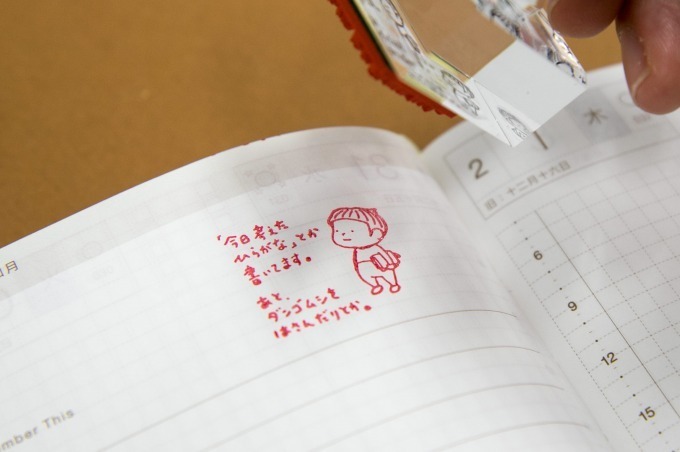 「今日考えた
ひらがな」とか
書いてます。
あと、
ダンゴムシを
はさんだりとか。
月
mber This
2 1 木
旧:十二月十六日
6
9
12
15